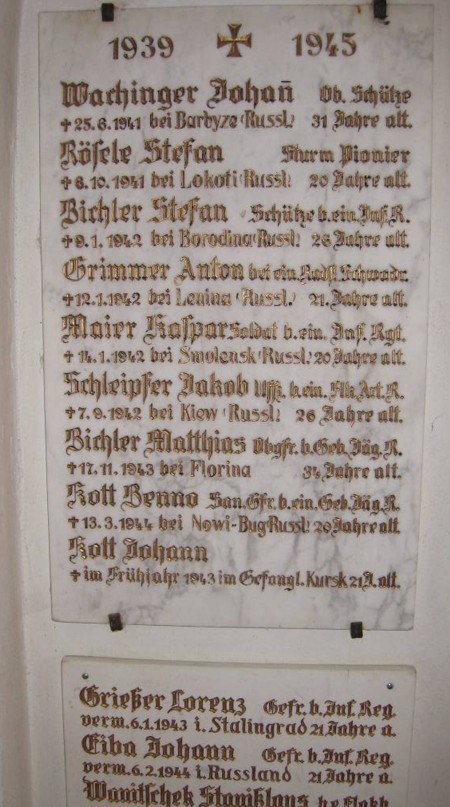 1939 1945
Wachinger Johan̄ Ob. Schütze
+25.6.1941 bei Barbyze (Russl.) 31 Jahre alt.
Rösele Stefan Sturm Pionier
+8.10.1941 bei Lokoti (Russl.) 20 Jahre alt.
Bichler Stefan Schütze b. ein. Inf. R.
+9.1.1942 bei Borodina (Russl.) 26 Jahre alt.
Grimmer Anton bei ein. Radf. Schwadr.
+12.1.1942 bei Lenina (Russl.) 21. Jahre alt.
Maier Kaspar Soldat b. ein. Inf. Rgt.
+14.1.1942 bei Smolensk (Russl.) 20 Jahre alt.
Schleipfer Jakob Uffz. b. ein. Art. R.
+7.9.1942 bei Kiew (Russl.) 26 Jahre alt.
Bichler Matthias Obgfr. b. Geb. Jäg. R.
+17.11.1943 bei Florina 34 Jahre alt.
Kott Benno San. Gfr. b. ein. Geb. Jäg. R.
+13.3.1944 bei Nowi-Bug Russl. 20 Jahre alt.
Kott Johann
+im Frühjahr 1943 im Gefangl. Kursk 21 J. alt.
Grießer Lorenz Gefr. b. Inf. Reg.
verm. 6.1.1943 i. Stalingrad 21 Jahre a.
Eiba Johann Gefr. b. Inf. Reg.
verm. 6.2.1944 i. Russland 21 Jahre a.
Wanitschek Stanislaus